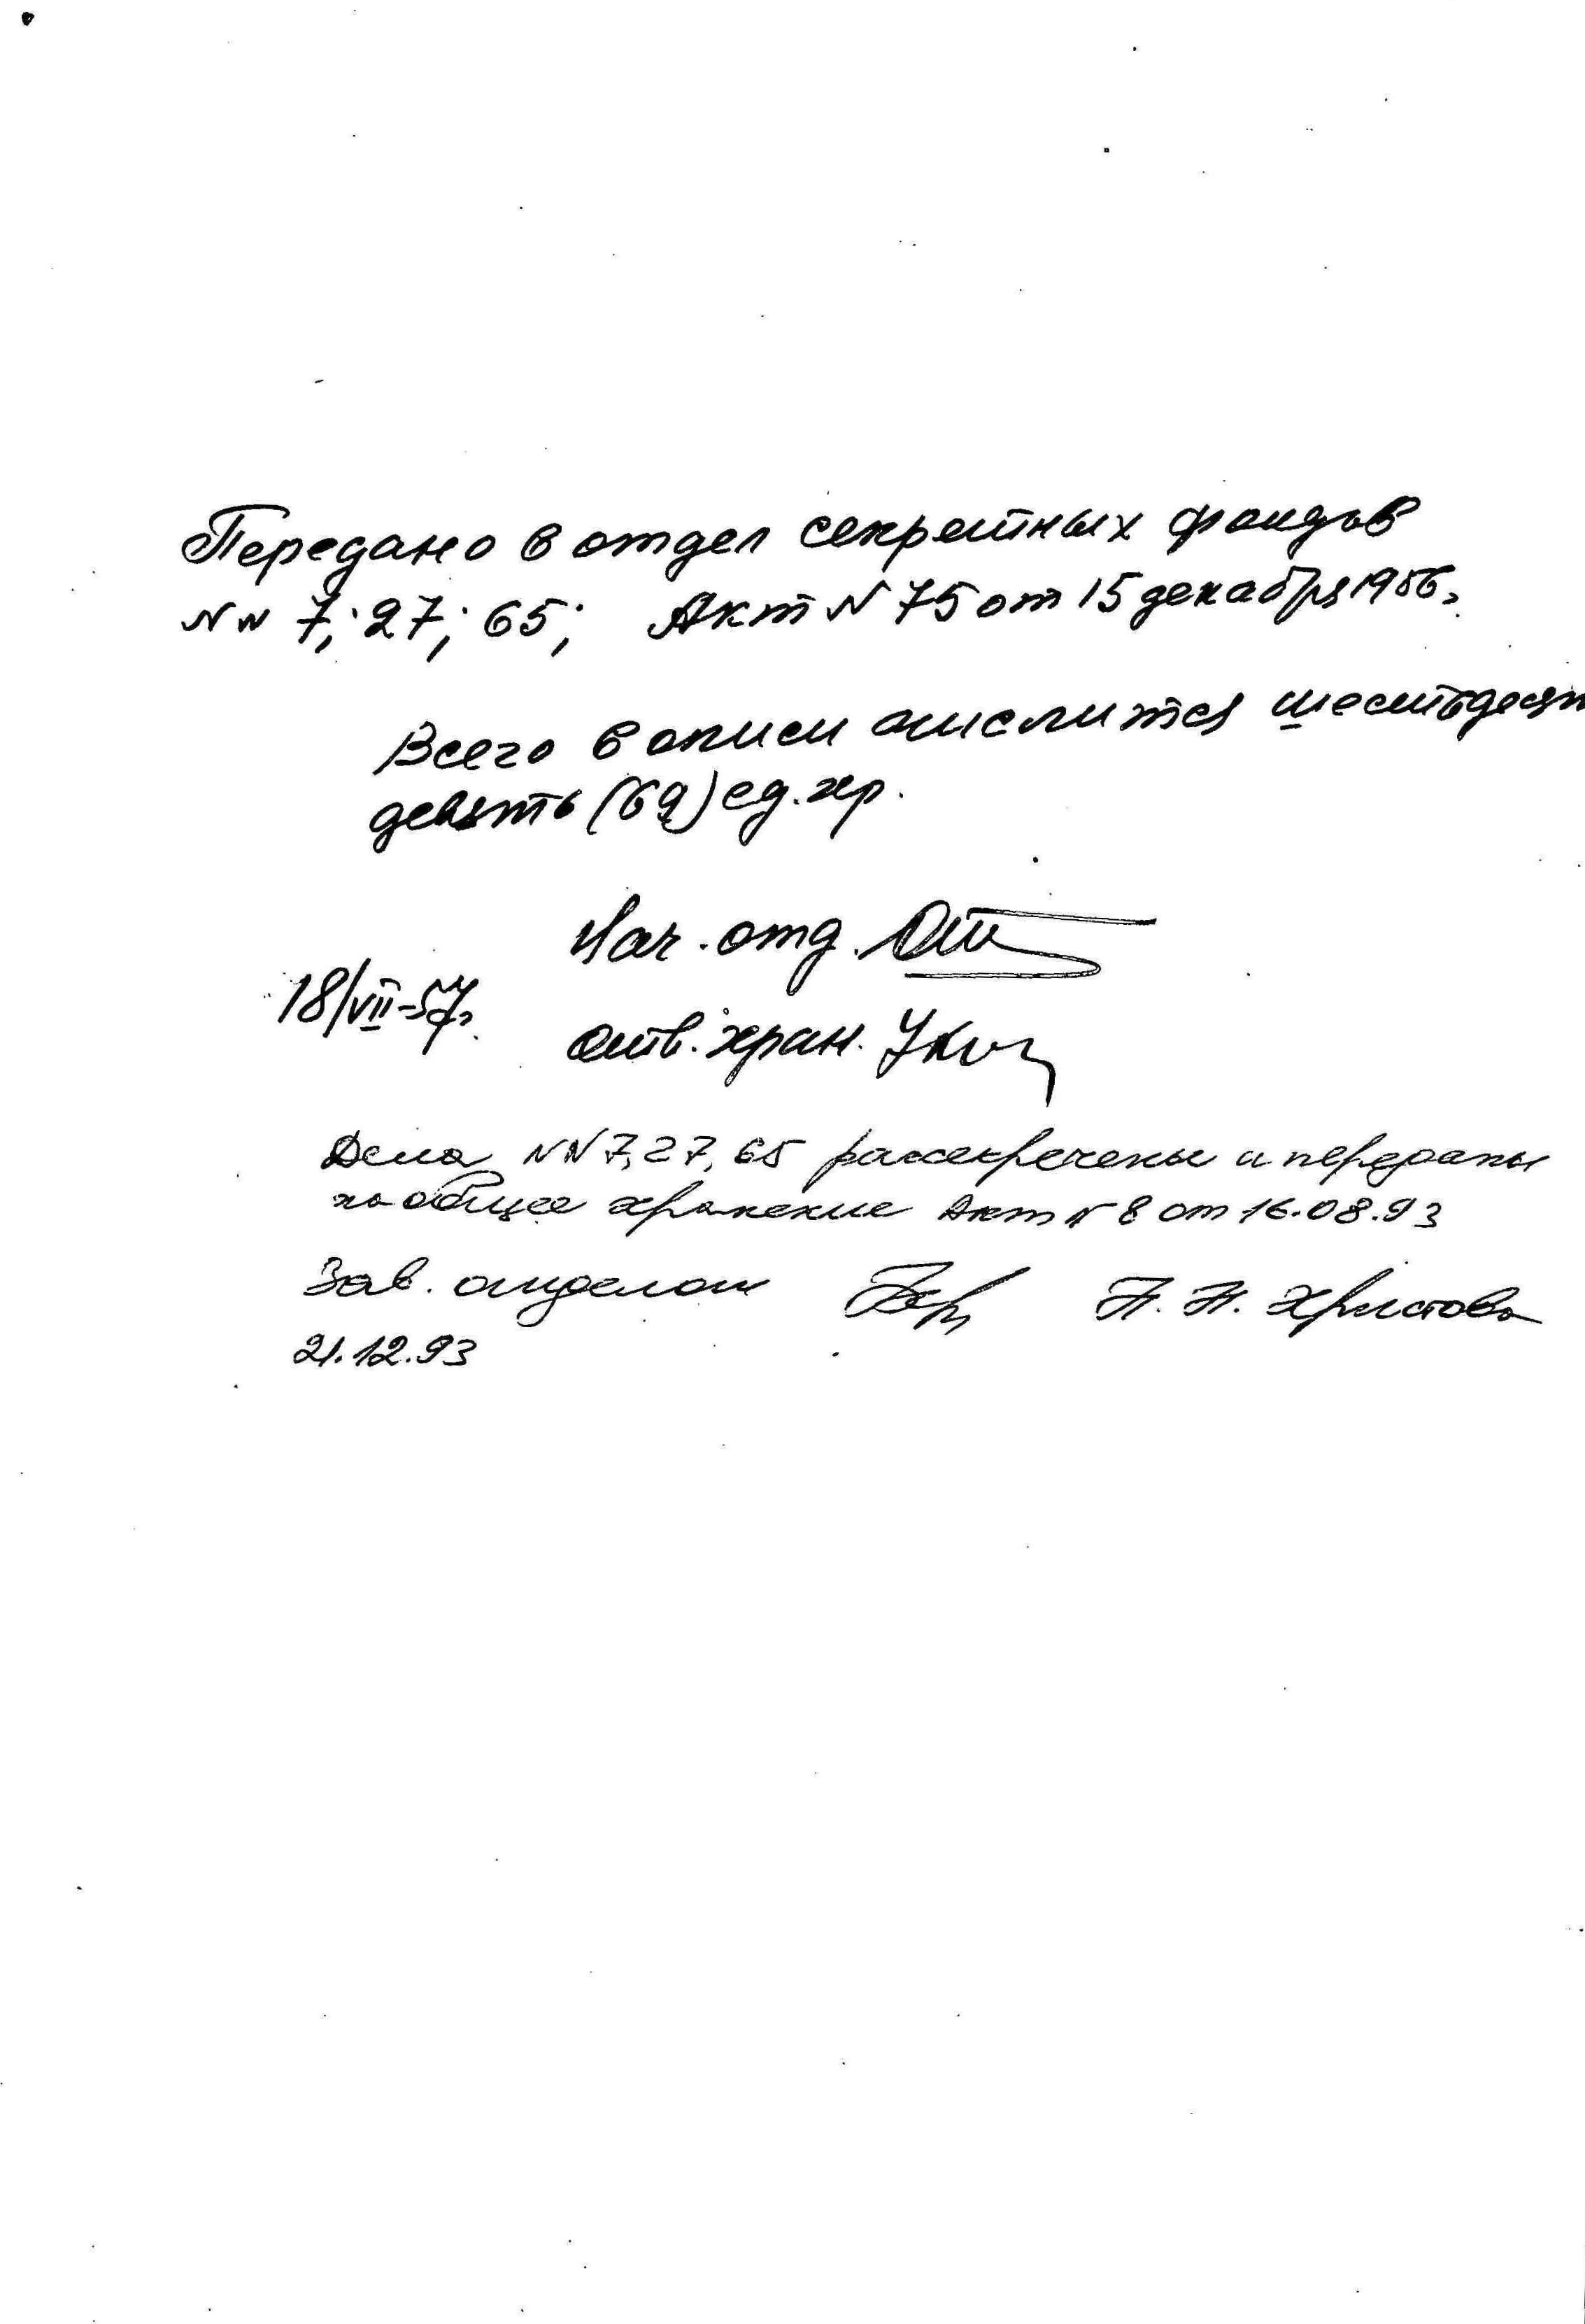 Передано в отдел секретных фондов
NN 7; 27; 65; Акт N 75 от 15 декабря 1956г.
Всего в описи числится шестьдесят
девять (69) ед. хр.
Нач. отд.
18/VII-57г.
Отв. хран.
Дела NN 7, 27, 65 рассекречены и переданы
на общее хранение Акт N 8 от 16.08.93
Зав. отделом Н. Н. Христова
21.12.93